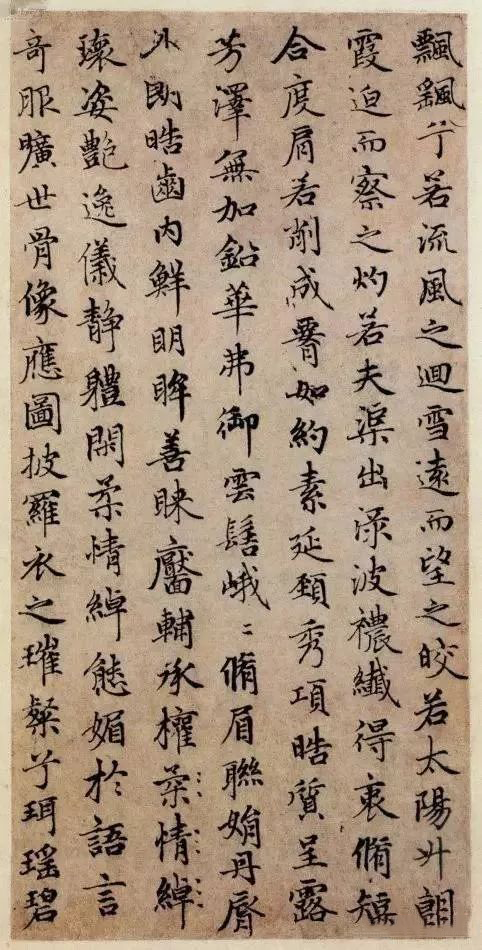 飄飖兮若流風之迴雪遠而望之皎若太陽升朝
霞迫而察之灼若夫渠出淥波襛纖得衷脩短
合度肩若削成腰如約素延頸秀項晧質呈露
芳澤無加鉛華弗御雲髻峨〻脩眉聯娟丹脣
外朗晧齒內鮮明眸善睞靨輔承權柔情綽
瓌姿艷逸儀靜體閑柔情綽態媚於語言
奇服曠世骨像應圖披羅衣之璀粲兮珥瑤碧